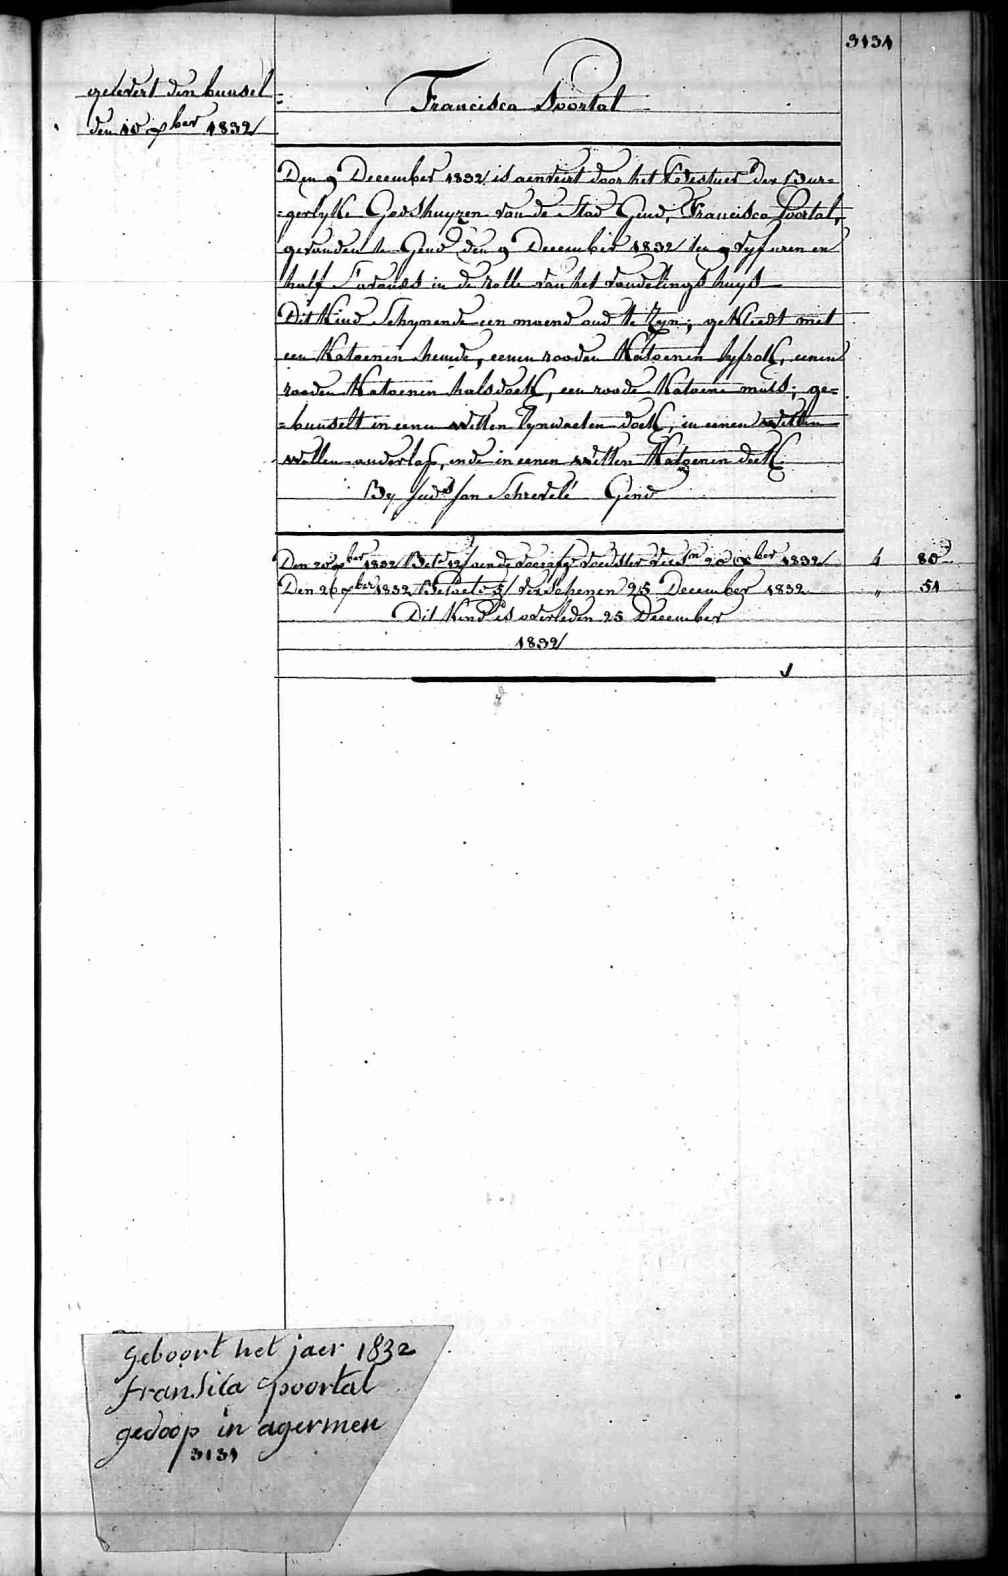 3131
gelevert den bunsel
den 10 xber 1832/
Francisca Poortal
Den 9 December 1832 is aenveirt door het Bestuer der Bur=
=gerlyke Godshuyzen van de Stad Gend, Francisca Poortal,
gevonden te Gend den 9 December 1832 ten vyf uren en
half s'avonds in de rolle van het vondelings huys
Dit Kind Schynende een maend oud te Zyn; gekleedt met
een Katoenen hemde, eenen rooden Katoenen lyfrok, eenen
rooden Katoenen halsdoek, een roode Katoene muts; ge=
=bunselt in eenen witten lynwaeten doek, in eenen witten
wollen onderlap, ende in eenen witten Katoenen doek
By Jud Jan Schrevele Gend
Den 20 xber 1832 Bet 12/ aen de voedster 20 xber 1832/ 4 80
Den 26 xber 1832 verschenen 25 December 1832 " 51
Dit Kind is overleden 25 December
1832/
Geboort het jaer 1832
fransica poortal
gedoop in agermen
3131